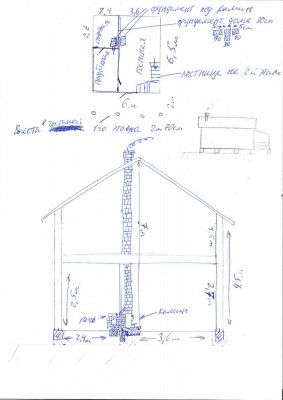 2,4 3,6 фундамент под камин
фундамент дома 30см
2,6
90 90
30
гостиная
6,5м
лестница на 2й этаж
6м
Высота в гостиной 1го этажа 2м 70см
7м
1,5м
2,5м
2,7м
печь
камин
2,4м
3,6м